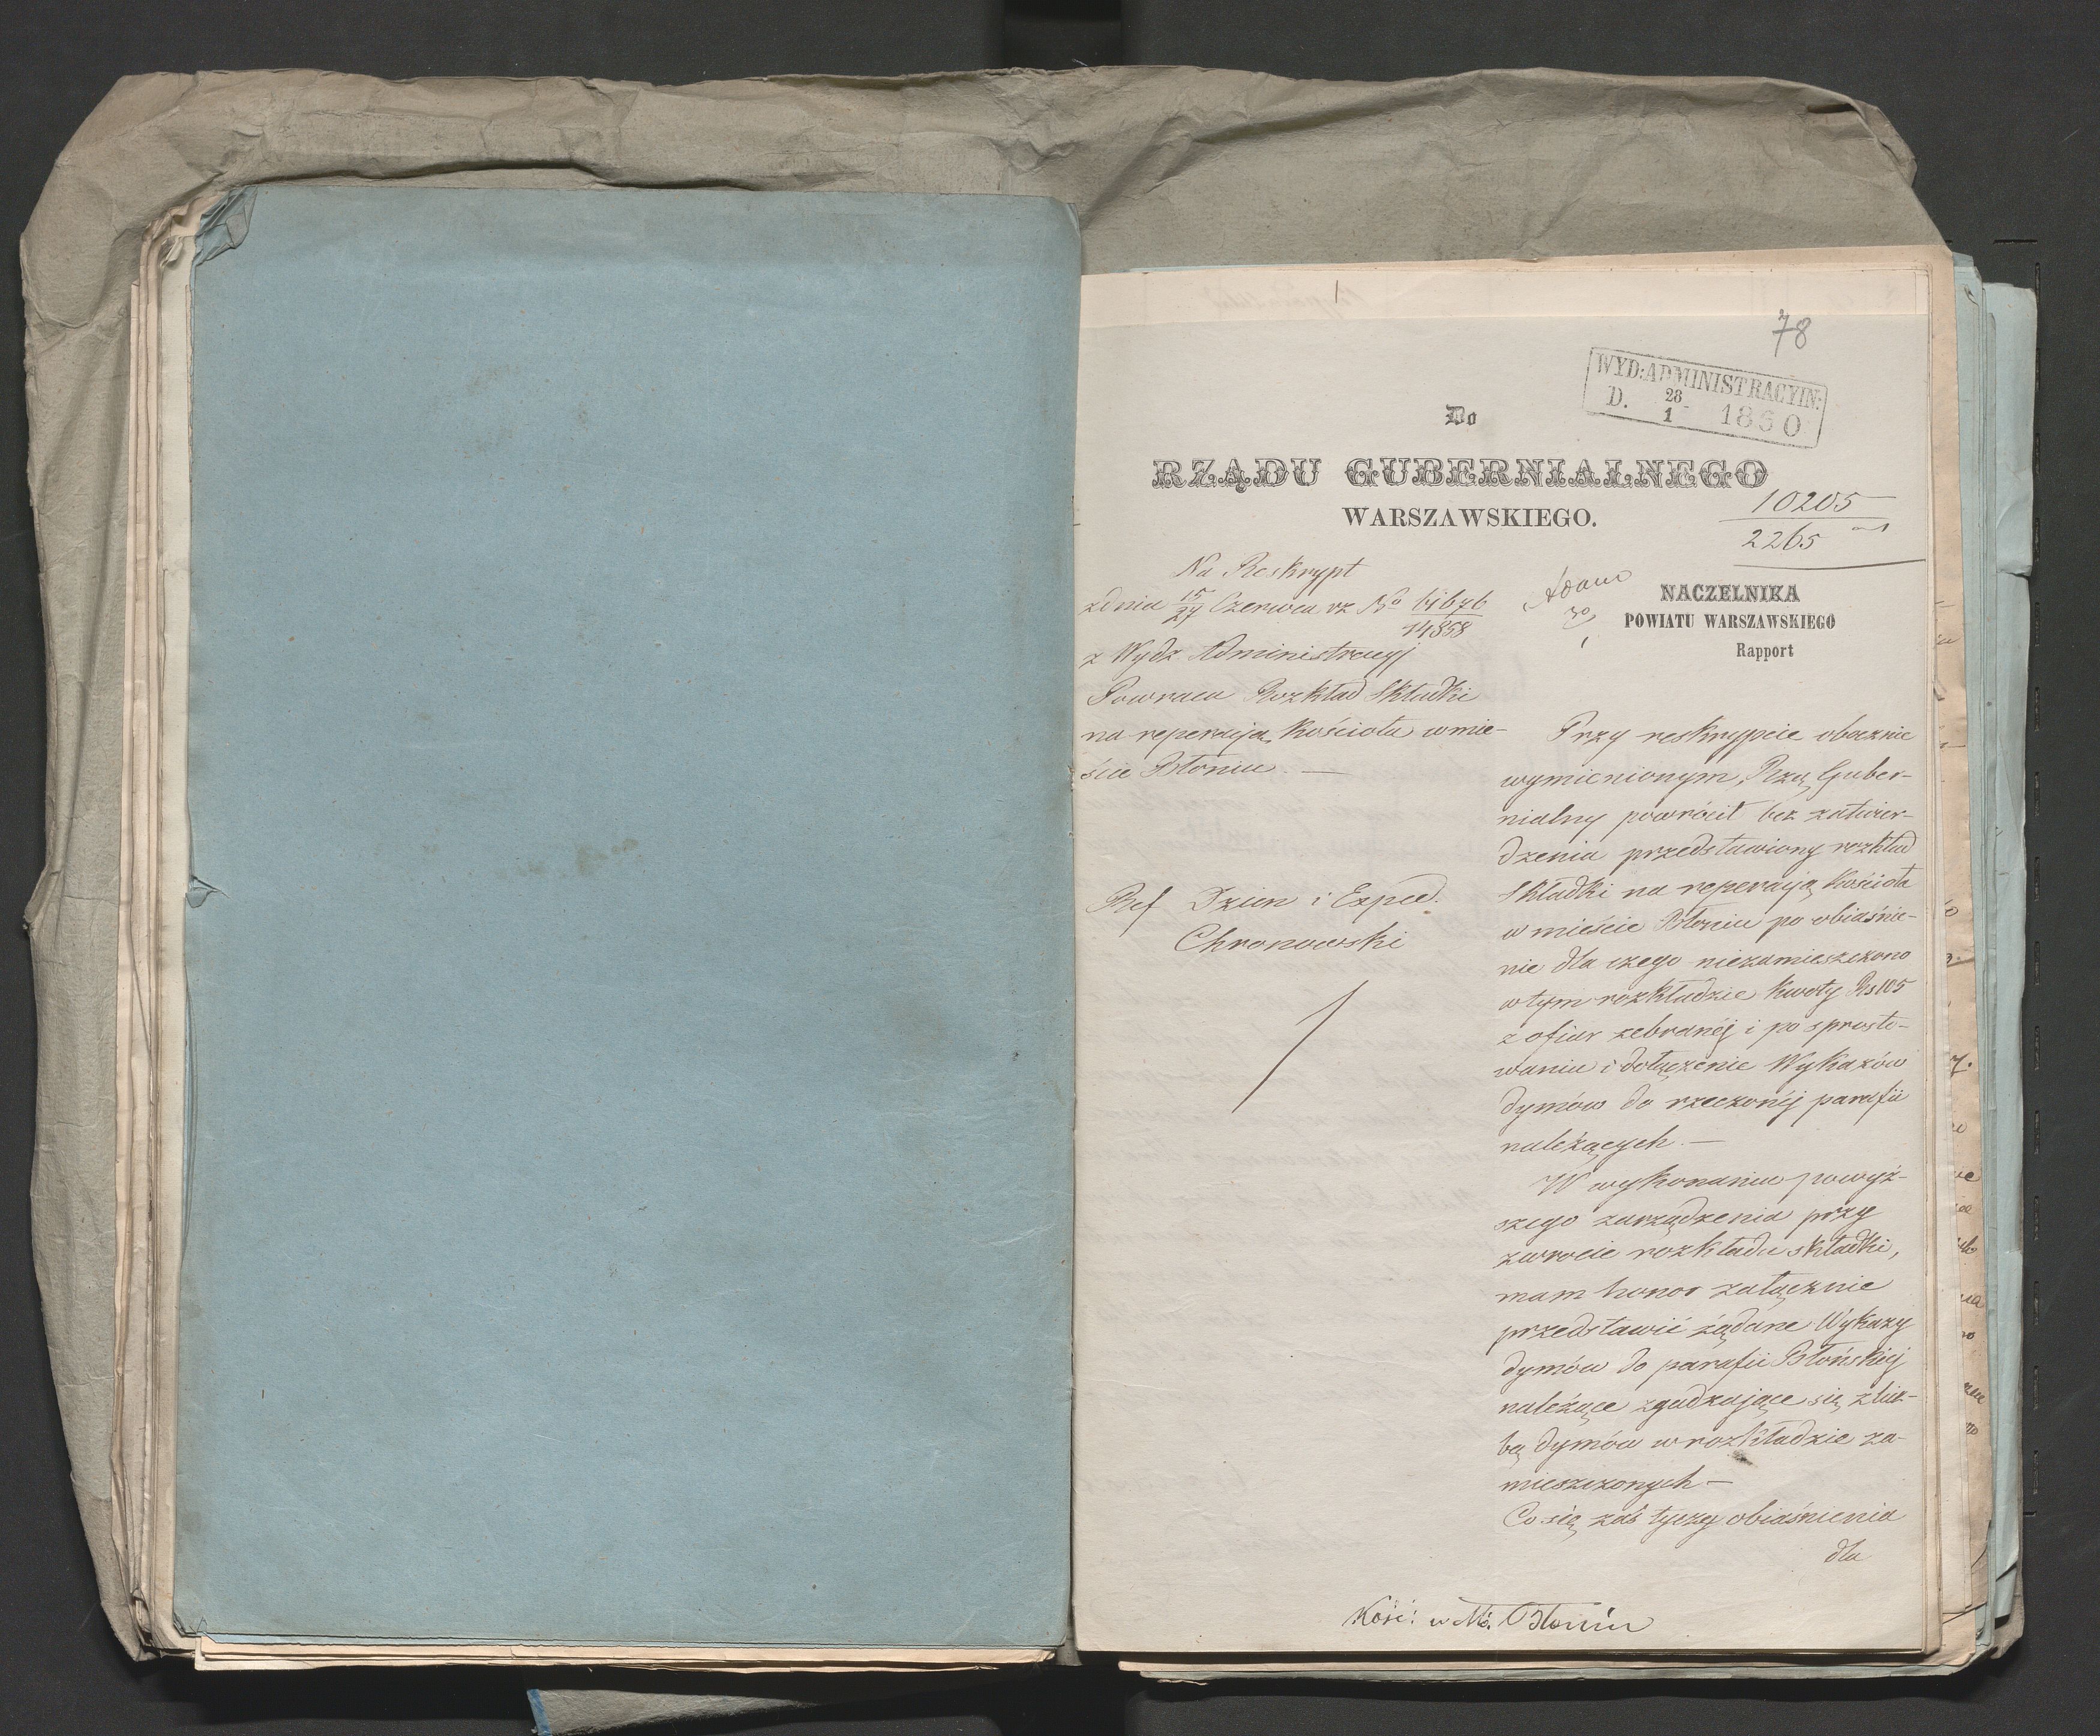 78
WYD: ADMINISTRACYIN:
D. 28/1 1860
Do
RZĄDU GUBERNIALNEGO
WARSZAWSKIEGO.
10205
2265
Na Reskrypt
z dnia 15/27 Czerwca rz No
14858
z Wydz Administracyj
Powraca Rozkład Składki
na reperacją Kościoła w mie-
ście Błoniu. —
Ref Dzien i Exped.
Chronowski
Adam
30
1
NACZELNIKA
POWIATU WARSZAWSKIEGO
Rapport
Przy reskrypcie obocznie
wymienionym, Rzą Guber-
nialny powrócił bez zatwier-
dzenia przedstawiony rozkład
Składki na reperacją Kościoła
w mieście Błoniu po obiaśnie-
nie dla czego niezamieszczono
w tym rozkładzie kwoty Rs 105
z ofiar zebranéj i po sprosto-
waniu i dołączenie Wykazów
dymów do rzeczonéj parafii
należących. —
W wykonaniu powyż-
szego zarządzenia przy
zwrocie rozkładu składki,
mam honor załącznie
przedstawić żądane Wykazy
dymów do parafii Błońskiej
należące zgadzające się z licz-
bą dymów w rozkładzie za-
mieszczonych —
Co się zaś tyczy obiaśnienia
dla
Kość: w Mć. Błoniu